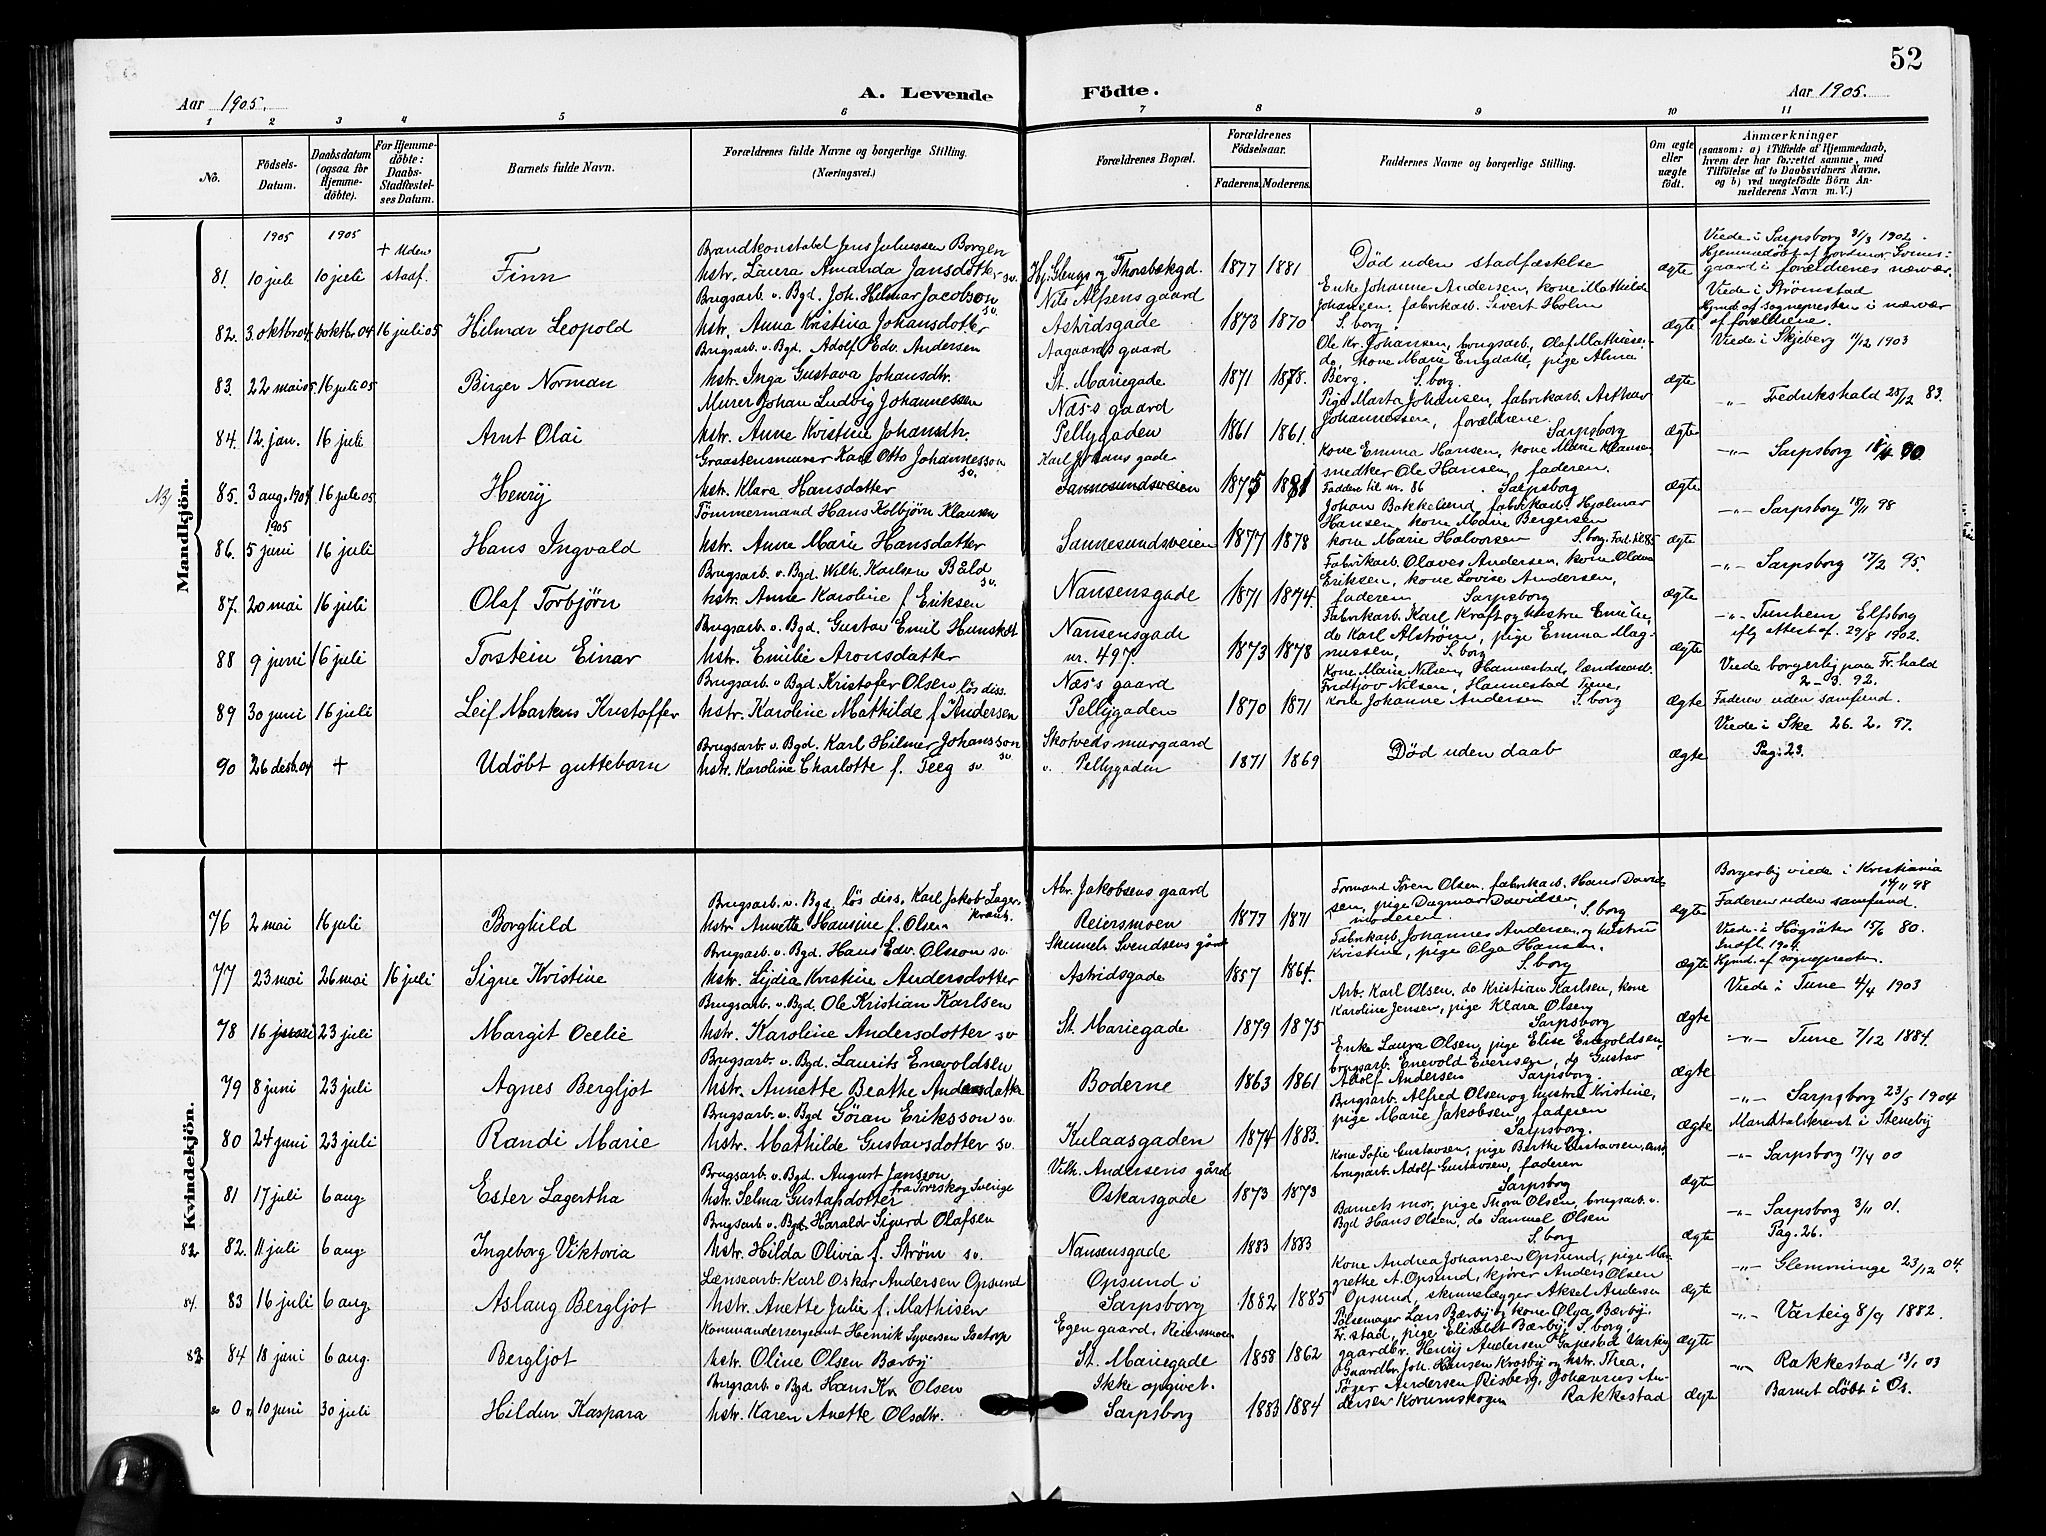 52
Aar 1905.
A. Levende Födte.
Aar 1905.
1 2 3 4 5 6 7 8 9 10 11
No.
Födsels-Datum.
Daabsdatum (ogsaa for Hjemmedöbte).
For Hjemmedöbte: Daabs-Stadfæstelses Datum.
Barnets fulde Navn.
Forældrenes fulde Navne og borgerlige Stilling.
(Næringsvei.)
Forældrenes Bopæl.
Forældrenes Födselsaar.
Faderens. Moderens.
Faddernes Navne og borgerlige Stilling.
Om ægte eller uægte födt.
Anmærkninger
(saasom: a) i Tilfælde af Hjemmedaab,
hvem der har forrettet samme, med
Tilföielse af to Daabsvidners Navne,
og b) ved uægtefödte Börn An-
melderens Navn m. V.)
Mandkjön.
1905 1905
81. 10 juli 10 juli + Uden stadf. Finn
Brandkonstabel Jens Juliussen Borgen
hstr. Laura Amanda Jansdotter sv.
Hj: Glengs og Thorsbækgd. 1877 1881
Död uden stadfæstelse
ægte
Viede i Sarpsborg 31/3 1902.
Hjemmedöbt af jordmor
gaard i forældrenes nærvær.
82. 3 oktbr 04 oktbr 04 16 juli 05 Hilmar Leopold
Brugsarb. v. Bgd. Joh. Hilmar Jacobson sv.
hstr. Anna Kristina Johansdotter
Nils Alfsens gaard
Astridsgade 1873 1870
Enke Johanne Andersen, kone Mathilde
Johansen, fabrikarb. Sivert Holm
S. borg
ægte
Viede i Strømstad
Hjmd. af sognepresten i nærvær
af forældrene.
83. 22 mai 05 16 juli 05 Birger Norman
Brugsarb. v. Bgd. Adolf Edv. Andersen
hstr. Inga Gustava Johansdtr.
Aagaards gaard
St. Mariegade 1871 1878.
Ole Kr. Johansen, brugsarb. Olaf Mathiesen,
do, kone Marie Engdahl, pige Alma
Berg. S. borg.
ægte
Viede i Skjeberg 11/12 1903
84. 12. jan. 16 juli Arnt Olai
Murer Johan Ludvig Johannessen
hstr. Anne Kristine Johansdtr.
Næss gaard
Pellygaden 1861 1861.
Pige Marta Johansen, fabrikarb. Arthur
Johannessen, forældrene.
Sarpsborg
ægte
-"- Fredrikshald 25/12 83.
85. 3 aug. 1904 16 juli 05 Henrij
Graastensmurer Karl Otto Johannesson sv.
hstr. Klara Hansdatter
Karl Johans gade
Sannesundsveien 1875 1881
Kone Emma Hansen, kone Marie Klausen
snedker Ole Hansen, faderen.
Faddere til nr. 86 Sarpsborg
ægte
-"- Sarpsborg 18/4 90
1905
86. 5 juni 16 juli Hans Ingvald
Tömmermand Hans Kolbjørn Klausen
hstr. Anne Marie Hansdatter
Sannesundsveien 1877 1878
Johan Bakkelund, fabrikarb. Hjalmar
Hansen, kone Marie Bergersen
kone Marie Halvorsen S. borg. Fad. til 85
ægte
-"- Sarpsborg 18/11 98
87. 20 mai 16 juli Olaf Torbjörn
Brugsarb. v. Bgd. Wilh. Karlsen Båld sv.
hstr. Anne Karoline f. Eriksen
Nansensgade 1871 1874.
Fabrikarb. Olaves Andersen, kone Olava
Eriksen, kone Lovise Andersen,
faderen Sarpsborg
ægte
-"- Sarpsborg 17/2 95.
88 9 juni 16 juli Torstein Einar
Brugsarb. v. Bgd. Gustav Emil Hunskot
hstr. Emilie Aronsdatter
Nansensgade
nr. 497. 1873 1878
Fabrikarb. Karl Kraft og hustru Emilie,
do Karl Alströn, pige Emma Mag-
nussen, S. borg
ægte
-"- Tunhem Elfsborg
iflg. attest af. 29/8 1902.
89 30 juni 16 juli Leif Markus Kristoffer
Brugsarb. v. Bgd. Kristofer Olsen lös diss.
hstr. Karoline Mathilde f. Andersen
Næss gaard
Pellygaden 1870 1871
Kone Marie Nilsen, Hannestad, lændsearb.
Fridtjov Nilsen, Hannestad Tune,
Kone Johanne Andersen S. borg
ægte
Viede borgerlig paa Fr. hald
2 - 3. 92.
Faderen uden samfund.
90 26 desb. 04 + Udöbt guttebarn
Brugsarb. v. Bgd. Karl Hilmer Johansson sv
hstr. Karoline Charlotte f. Teeg sv.
Skotveds murgaard
v. Pellygaden 1871 1869
Död uden daab
ægte
Viede i Ske 26. 2. 97.
Pag. 23.
Kvindekjön.
76 2 mai 16 juli Borghild
Brugsarb. v. Bgd. lös diss. Karl Jakob Lager-
krantz.
hstr. Annette Hansine f. Olsen
Abr. Jakobsens gaard
Reiersmoen 1877 1871
Formand Sören Olsen, fabrikarb. Hans David-
sen, pige Dagmar Davidsen,
moderen. S. borg
ægte
Borgerlig viede i Kristiania
14/11 98
Faderen uden samfund.
77 23 mai 26 mai 16 juli Signe Kristine
Brugsarb. v. Bgd. Hans Edv. Olsson sv.
hstr. Lijdia Kristine Andersdotter
Svendsens gård
Astridsgade 1857 1864.
Fabrikarb. Johannes Andersen og hustru
Kristine, pige Olga Hansen.
S. borg
ægte
Viede i Högsäter 15/6 80.
Indfl. 1904.
Hjmd. af sognepresten.
78 16 juni 23 juli Margit Ocelie
Brugsarb. v. Bgd. Ole Kristian Karlsen
hstr. Karoline Andersdotter sv
St. Mariegade 1879 1875
Arb. Karl Olsen, do Kristian Karlsen, kone
Karoline Jensen, pige Klara Olsen
Sarpsborg
ægte
Viede i Tune 4/4 1903
79 8 juni 23 juli Agnes Bergljot
Brugsarb. v. Bgd. Laurits Enevoldsen
hstr. Annette Beathe Andersdatter
Boderne 1863 1861
Enke Laura Olsen, pige Elise Enevoldsen,
brugsarb. Enevold Evensen, do Gustav
Adolf Andersen Sarpsborg.
ægte
-"- Tune 7/12 1884.
80 24 juni 23 juli Randi Marie
Brugsarb. v. Bgd Göran Eriksson sv.
hstr. Mathilde Gustavsdotter sv.
Kulaasgaden 1874 1883.
Brugsarb. Alfred Olsen og hustru Kristine,
pige Marie Jakobsen, faderen
Sarpsborg.
ægte
-"- Sarpsborg 23/5 1904
Mandtalskrevet i Steneby
81 17 juli 6 aug. Ester Lagertha
Brugsarb. v. Bgd. August Jansson
fra Torrskog Sverige
hstr. Selma Gustafsdotter
Vilh. Andersens gård
Oskarsgade 1873 1873
Kone Sofie Gustavsen, pige Berthe Gustavsen,
brugsarb. Adolf Gustavsen, faderen
Sarpsborg
ægte
-"- Sarpsborg 17/4 00
82 82. 11 juli 6 aug. Ingeborg Viktoria
Brugsarb. v. Bgd. Harald Sigurd Olafsen
hstr. Hilda Olivia f. Ström sv.
Nansensgade 1883 1883
Barnets mor, pige Thora Olsen, brugsarb. v.
Bgd Hans Olsen, do Samuel Olsen
S. borg
ægte
-"- Sarpsborg 3/11 01.
Pag. 26.
84. 83 16 juli 6 aug. Aslaug Bergljot
Lænsearb. Karl Oskar Andersen Opsund
hstr. Anette Julie f. Mathisen
Opsund i
Sarpsborg 1882 1885
Kone Andrea Johansen Opsund, pige Mar-
grethe A. Opsund, kjører Anders Olsen
Opsund, skinnelægger Aksel Andersen
ægte
-"- Glemminge 23/12 04.
83 84 18 juni 6 aug. Bergljot
Kommandersergeant Henrik Syversen
hstr. Oline Olsen Bærbÿ
Egen gaard, Reiersmoen
St. Mariegade 1858 1862
Pölsemager Lars Bærby og kone Olga Bærbÿ.
Fr. stad, pige Elisabet Bærbÿ S. borg.
gaardbr. Henrij Andersen Varteig
ægte
-"- Varteig 8/9 1882.
0 10 juni 30 juli Hildur Kaspara
Brugsarb. v. Bgd. Hans Kr. Olsen
hstr. Karen Anette Olsdtr.
Ikke opgivet.
Sarpsborg 1883 1884
Gaardbr. Joh. Hansen Krosbÿ og hstr. Thea,
Andersen Risberg, Johannes An-
dersen Korumskogen Rakkestad
ægte
-"- Rakkestad 13/1 03
Barnet döbt i Os.